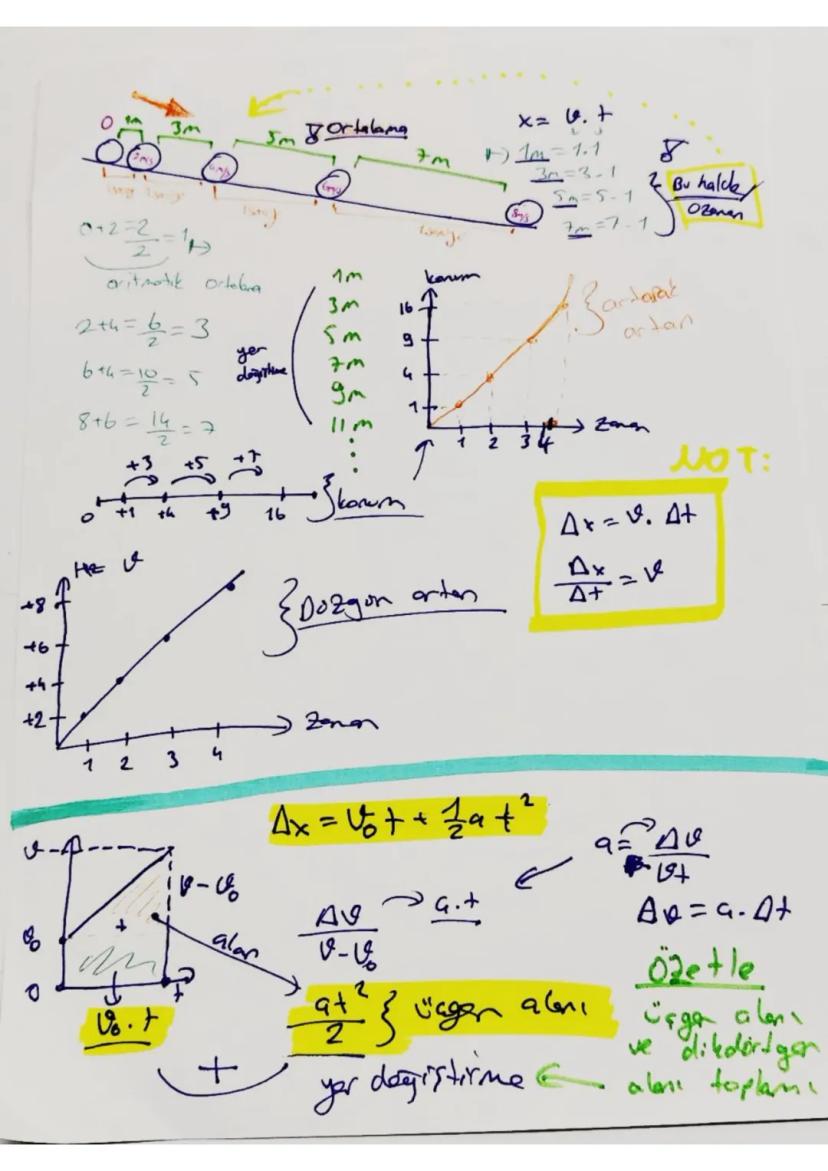 0 1m 3m 5m v ortalama 7m
2m/s 4m/s 6m/s 8m/s
1sny 1sny 1sny 1sny
x = v.t
1m = 1.1
3m = 3-1
5m = 5-1
7m = 7-1
Bu halde
ozaman
0+2=2/2=1
aritmatik ortalama
2+4=6/2=3
6+4=10/2=5
8+6=14/2=7
yer
değiştirme
1m
3m
5m
7m
9m
11m
konum
16
9
4
1
1 2 3 4 Zaman
artarak
artan
+3 +5 +7
0 +1 +4 +9 16
konum
NOT:
Δx = v. Δt
Δx/Δt = v
Hız v
+8
+6
+4
+2
1 2 3 4
Zaman
Düzgün artan
Δx = v₀t + 1/2at²
v
v₀
0
v-v₀
+
t
alan
v₀.t
+
Δv/v-v₀ → a.t
at²/2 } üçgen alanı
yer değiştirme
a = Δv/Vt
Δv = a. Δt
Özetle
üçgen alanı
ve dikdörtgen
alanı toplamı